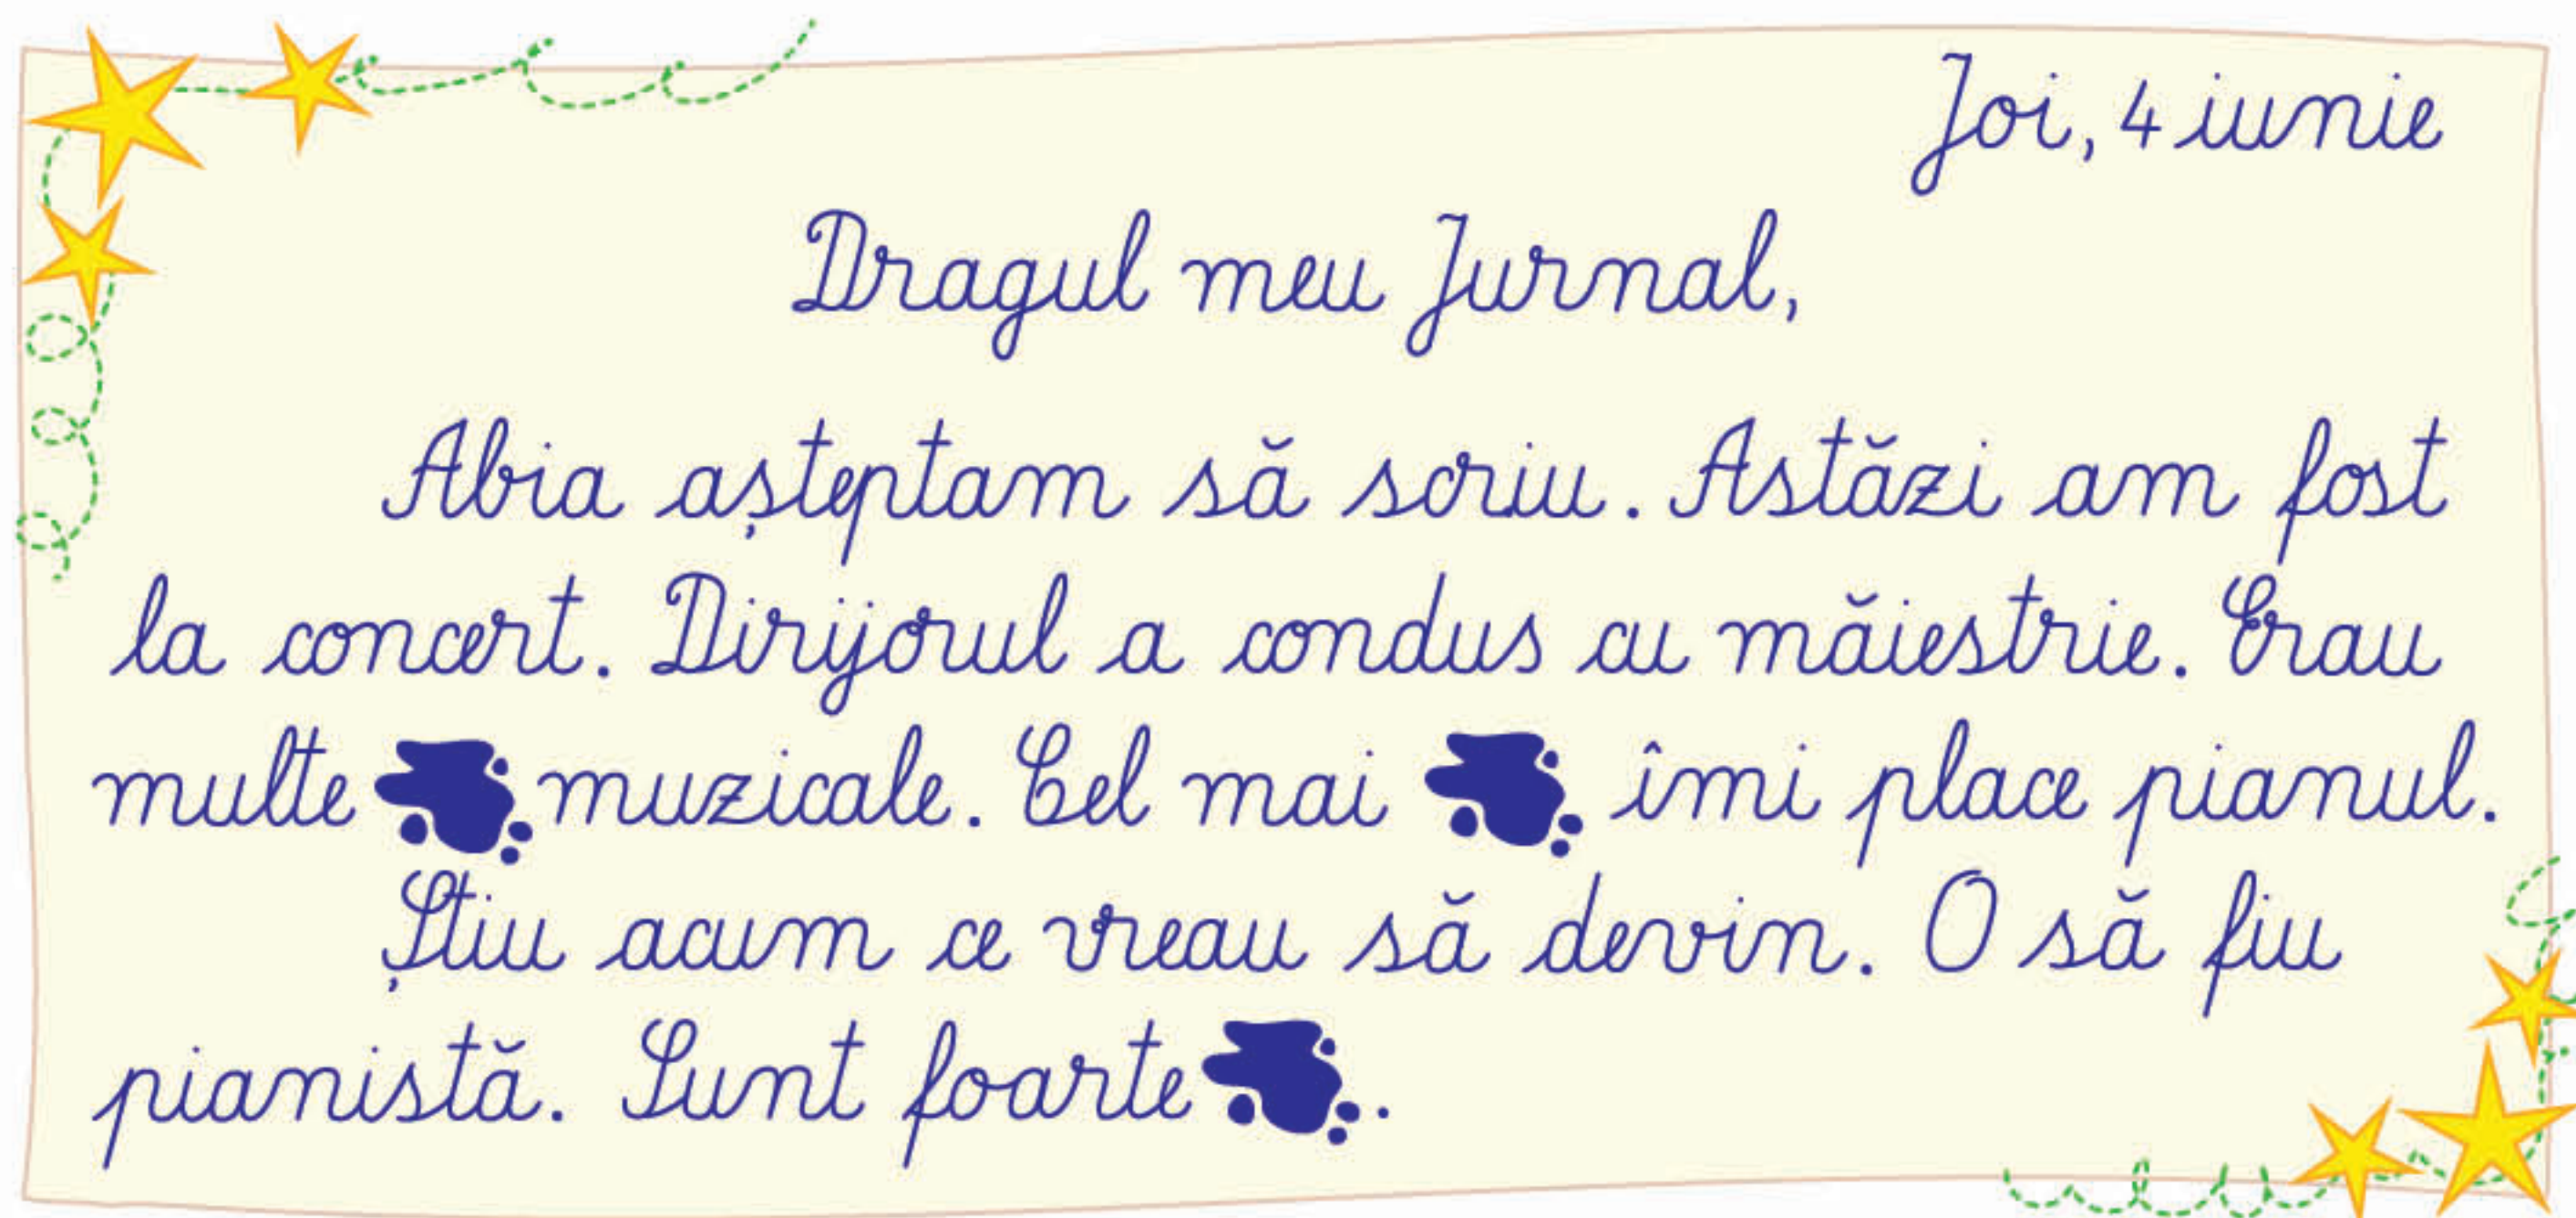 Joi, 4 iunie
Dragul meu Jurnal,
Abia așteptam să scriu. Astăzi am fost
la concert. Dirijorul a condus cu măiestrie. Erau
multe muzicale. Cel mai îmi place pianul.
Știu acum ce vreau să devin. O să fiu
pianistă. Sunt foarte .